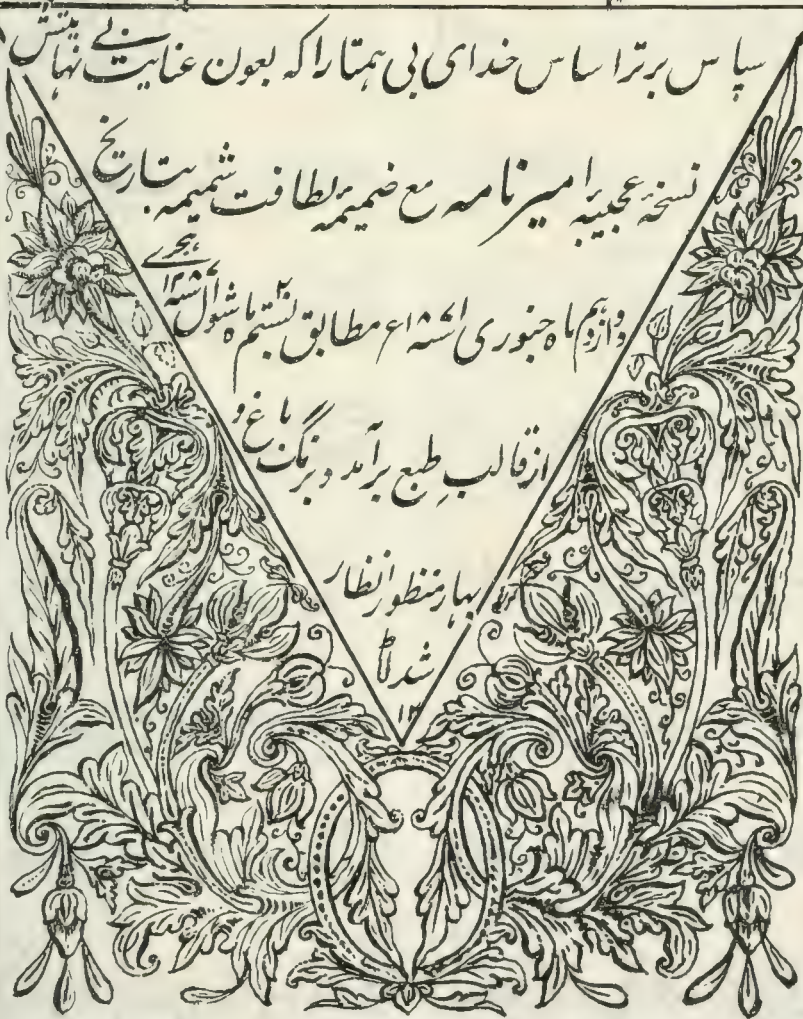 سپاس برتر اساس خدای بی همتا را که بعون عنایت بی نهایتش
نسخهٔ عجیبه امیرنامه مع ضمیمهٔ لطافت شمیمه بتاریخ
دوازدهم ماه جنوری ۱۸۷۱ء مطابق بستم ماه شوال ۱۲۸۷ هجری
از قالب طبع برآمد و برنگ باغ و
بهار منظور انظار
شد فقط
۱۲